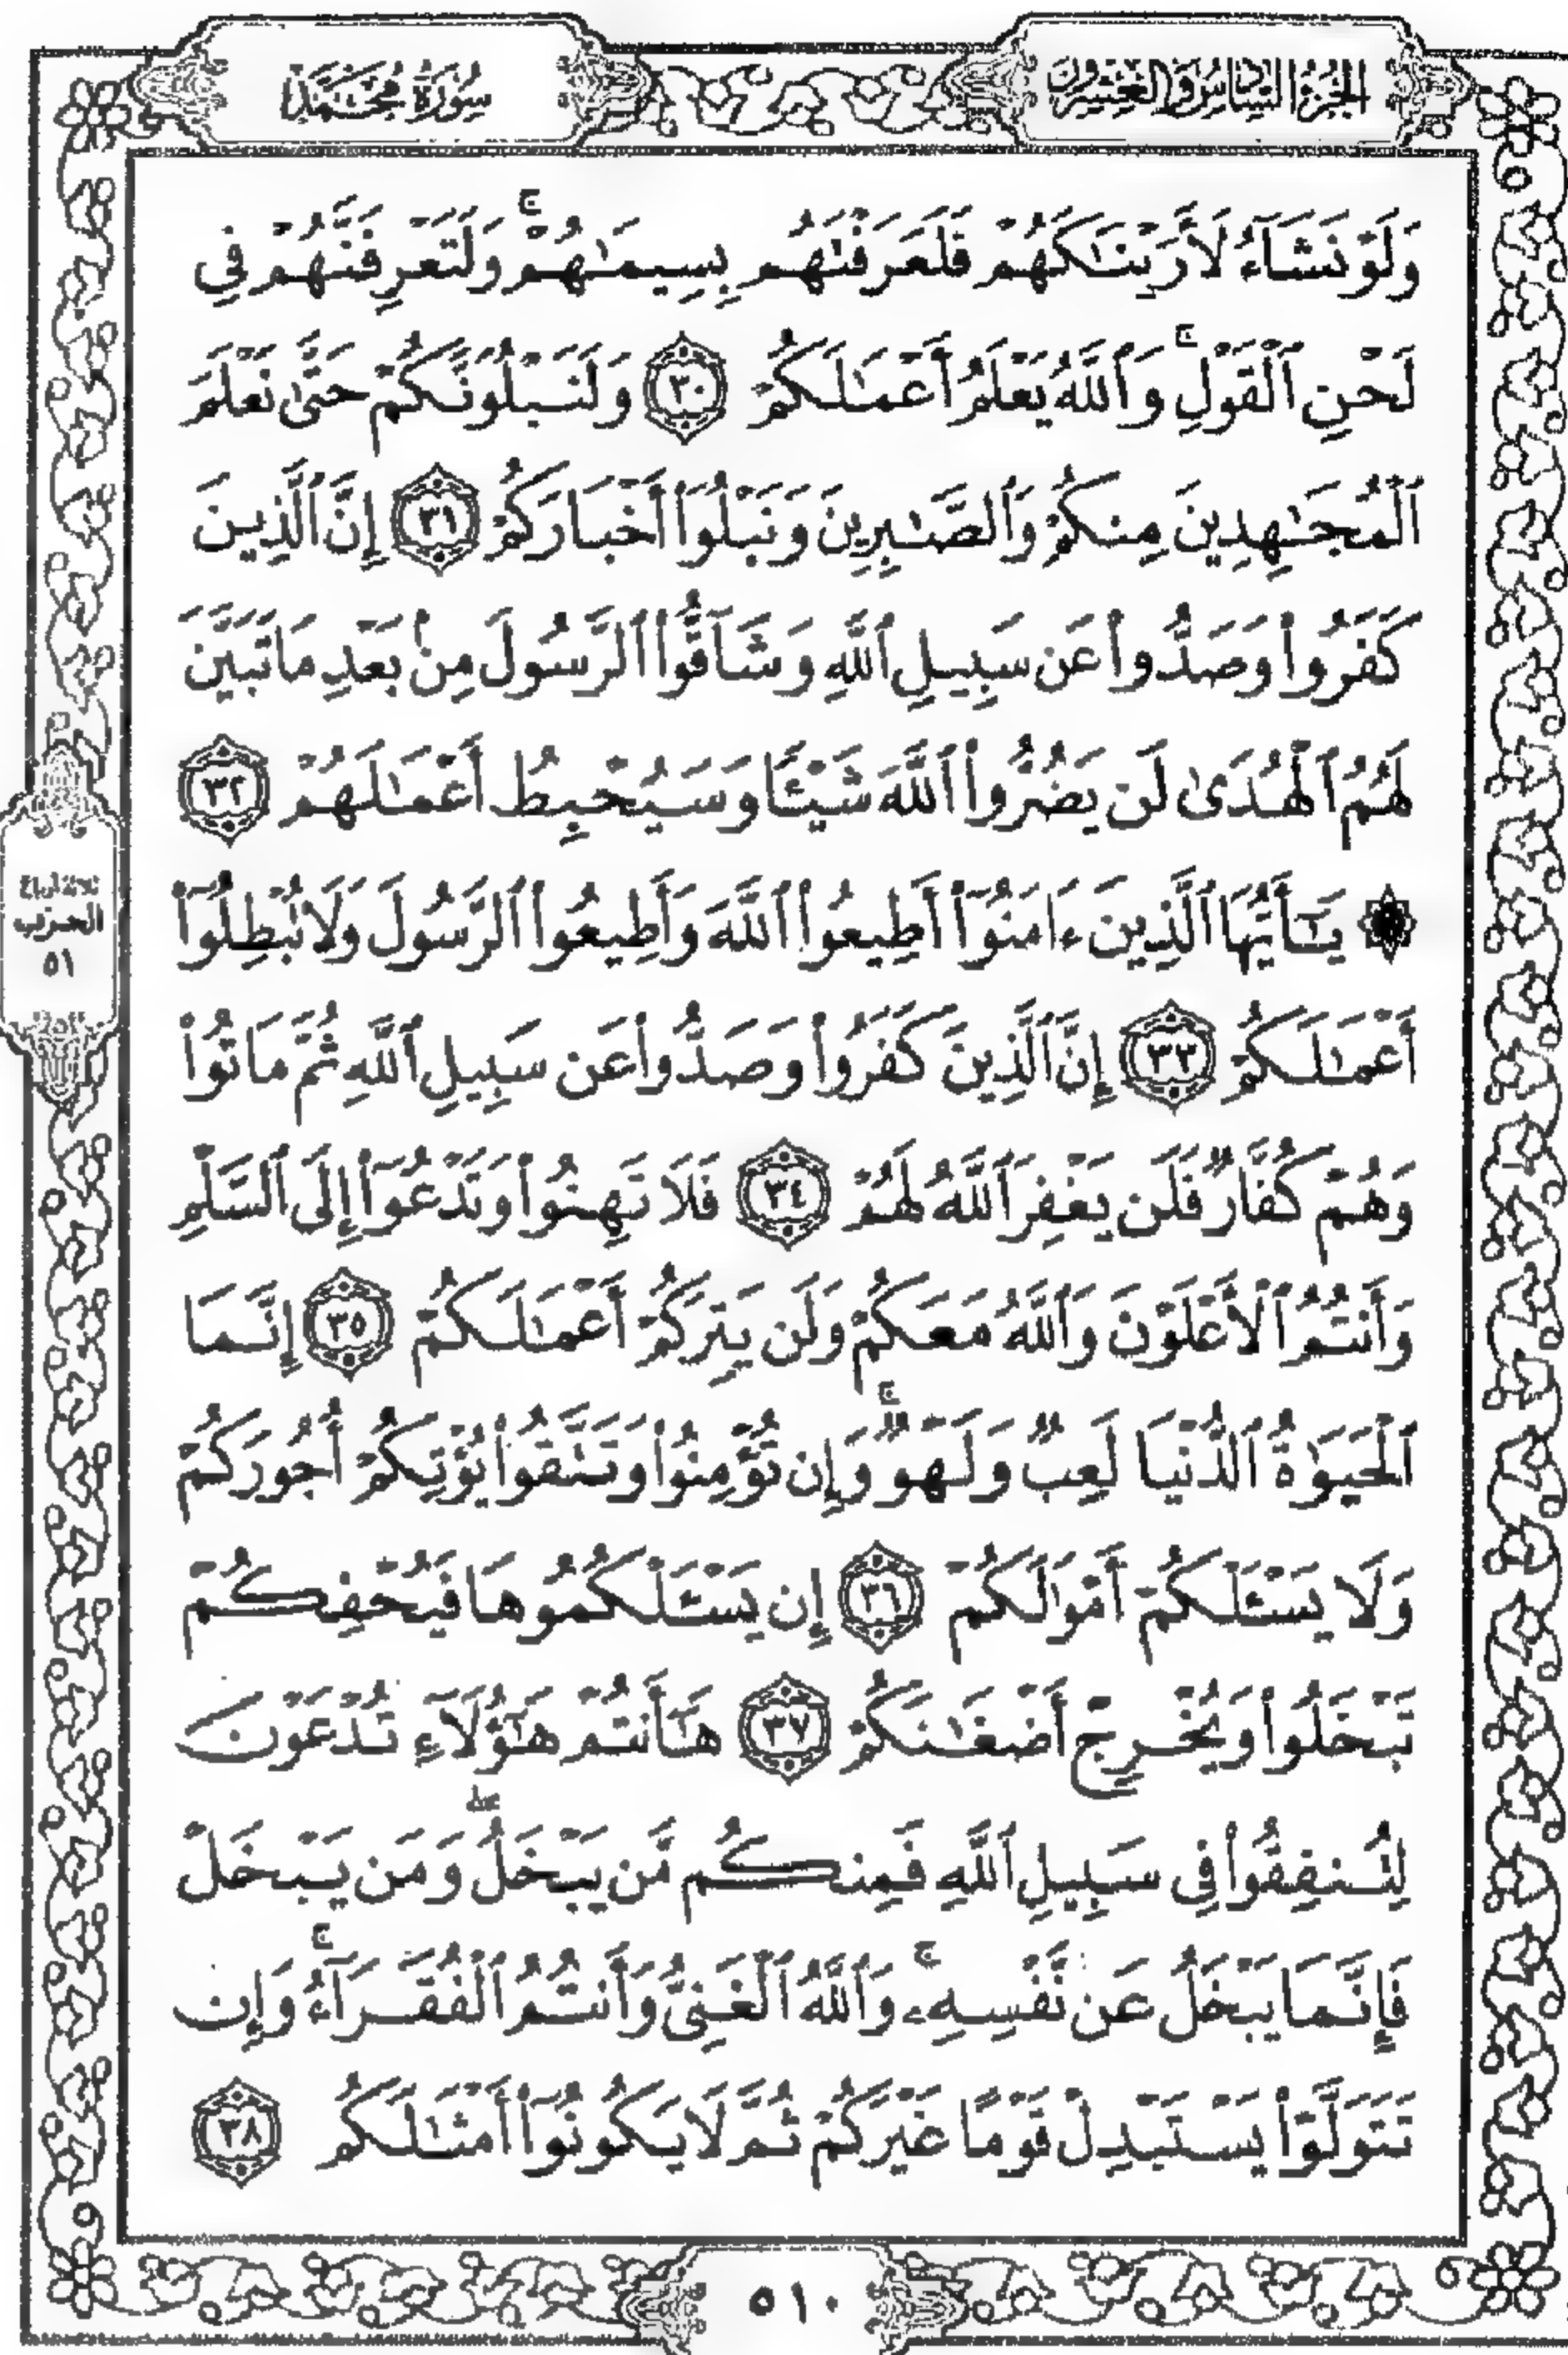 الجُزْءُ السَّادِسُ وَالعِشْرُونَ
سُورَةُ مُحَمَّدٍ
وَلَوْ نَشَآءُ لَأَرَيْنَٰكَهُمْ فَلَعَرَفْتَهُم بِسِيمَٰهُمْ ۚ وَلَتَعْرِفَنَّهُمْ فِى
لَحْنِ ٱلْقَوْلِ ۚ وَٱللَّهُ يَعْلَمُ أَعْمَٰلَكُمْ ٣٠ وَلَنَبْلُوَنَّكُمْ حَتَّىٰ نَعْلَمَ
ٱلْمُجَٰهِدِينَ مِنكُمْ وَٱلصَّٰبِرِينَ وَنَبْلُوَا۟ أَخْبَارَكُمْ ٣١ إِنَّ ٱلَّذِينَ
كَفَرُوا۟ وَصَدُّوا۟ عَن سَبِيلِ ٱللَّهِ وَشَآقُّوا۟ ٱلرَّسُولَ مِنۢ بَعْدِ مَا تَبَيَّنَ
لَهُمُ ٱلْهُدَىٰ لَن يَضُرُّوا۟ ٱللَّهَ شَيْـًٔا وَسَيُحْبِطُ أَعْمَٰلَهُمْ ٣٢
۞ يَٰٓأَيُّهَا ٱلَّذِينَ ءَامَنُوٓا۟ أَطِيعُوا۟ ٱللَّهَ وَأَطِيعُوا۟ ٱلرَّسُولَ وَلَا تُبْطِلُوٓا۟
أَعْمَٰلَكُمْ ٣٣ إِنَّ ٱلَّذِينَ كَفَرُوا۟ وَصَدُّوا۟ عَن سَبِيلِ ٱللَّهِ ثُمَّ مَاتُوا۟
وَهُمْ كُفَّارٌ فَلَن يَغْفِرَ ٱللَّهُ لَهُمْ ٣٤ فَلَا تَهِنُوا۟ وَتَدْعُوٓا۟ إِلَى ٱلسَّلْمِ
وَأَنتُمُ ٱلْأَعْلَوْنَ وَٱللَّهُ مَعَكُمْ وَلَن يَتِرَكُمْ أَعْمَٰلَكُمْ ٣٥ إِنَّمَا
ٱلْحَيَوٰةُ ٱلدُّنْيَا لَعِبٌ وَلَهْوٌ ۚ وَإِن تُؤْمِنُوا۟ وَتَتَّقُوا۟ يُؤْتِكُمْ أُجُورَكُمْ
وَلَا يَسْـَٔلْكُمْ أَمْوَٰلَكُمْ ٣٦ إِن يَسْـَٔلْكُمُوهَا فَيُحْفِكُمْ
تَبْخَلُوا۟ وَيُخْرِجْ أَضْغَٰنَكُمْ ٣٧ هَٰٓأَنتُمْ هَٰٓؤُلَآءِ تُدْعَوْنَ
لِتُنفِقُوا۟ فِى سَبِيلِ ٱللَّهِ فَمِنكُم مَّن يَبْخَلُ ۖ وَمَن يَبْخَلْ
فَإِنَّمَا يَبْخَلُ عَن نَّفْسِهِۦ ۚ وَٱللَّهُ ٱلْغَنِىُّ وَأَنتُمُ ٱلْفُقَرَآءُ ۚ وَإِن
تَتَوَلَّوْا۟ يَسْتَبْدِلْ قَوْمًا غَيْرَكُمْ ثُمَّ لَا يَكُونُوٓا۟ أَمْثَٰلَكُم ٣٨
ثلاثة أرباع
الحزب
٥١
٥١٠